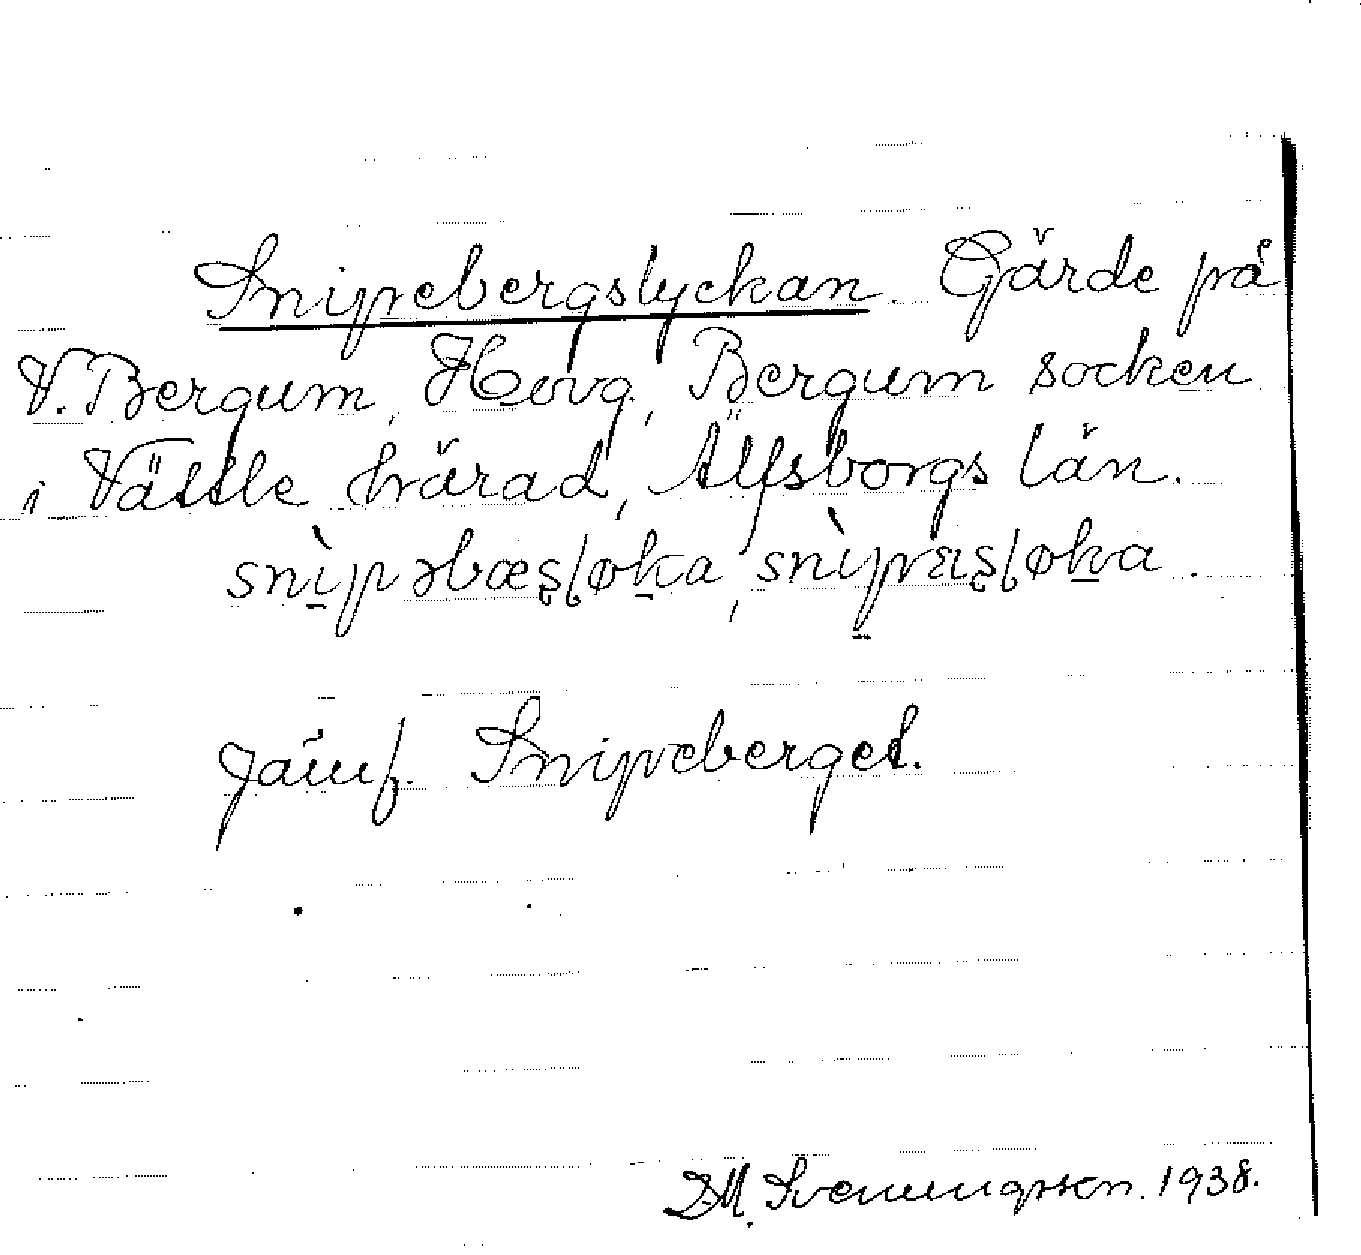 Snipebergslyckan. Gärde på
V. Bergum, Hovg., Bergum socken
i Vättle härad, Älfsborgs län.
snìpəbæʂɭøka, snìpæʂɭøka.
Jämf. Snipeberget.
D.M. Svenningsson. 1938.